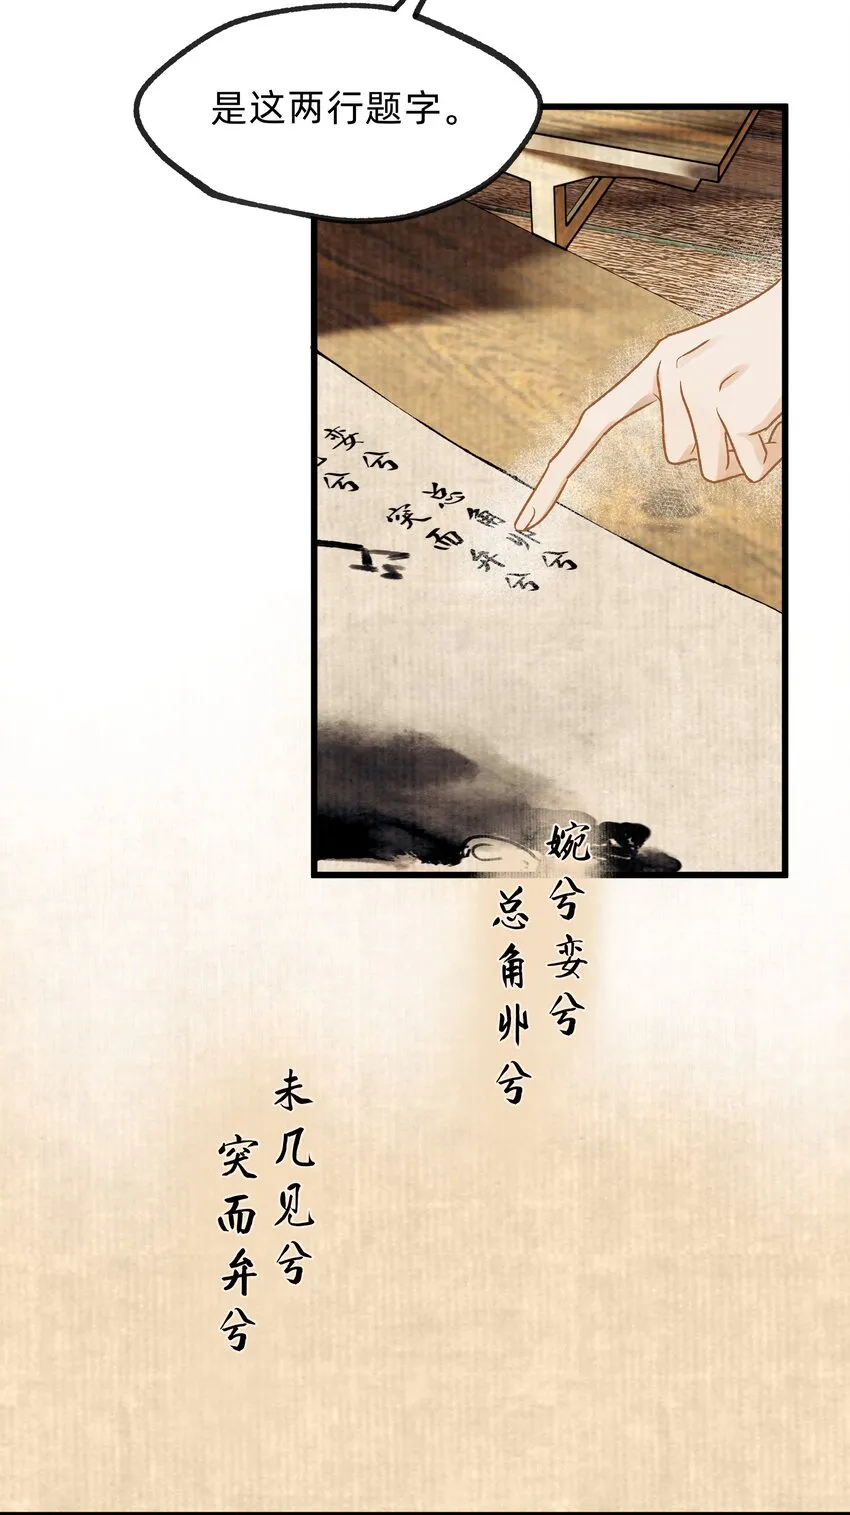 是这两行题字。
娈兮
兮
总角丱兮
突而弁兮
婉兮娈兮
总角丱兮
未几见兮
突而弁兮